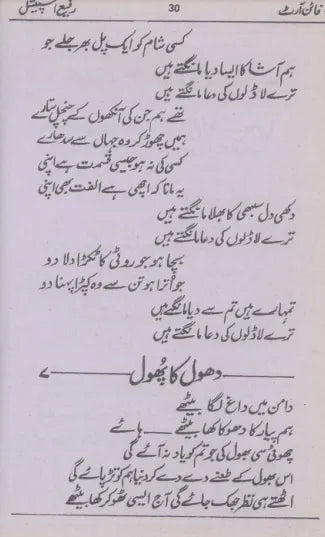 فائن آرٹ 30 رفیع اسپیشل
کسی شام کو ایک پل بھر جلے جو
ہم آشا کا ایسا دیا مانگتے ہیں
ترے لاڈلوں کی دعا مانگتے ہیں
تھے ہم جن کی آنکھوں کے چنچل ستارے
ہمیں چھوڑ کر وہ جہاں سے سدھارے
کسی کی نہ ہو جیسی قسمت ہے اپنی
یہ مانا کہ اچھی ہے الفت بھی اپنی
دکھی دل سبھی کا بھلا مانگتے ہیں
ترے لاڈلوں کی دعا مانگتے ہیں
بچا ہو جو روٹی کا ٹکڑا دلا دو
جو اُترا ہو تن سے وہ کپڑا پہنا دو
تمہارے ہیں تم سے دیا مانگتے ہیں
ترے لاڈلوں کی دعا مانگتے ہیں
دھول کا پُھول ۷
دامن میں داغ لگا بیٹھے
ہم پیار کا دھوکا کھا بیٹھے ـــ ہائے
چھوٹی سی بھول کی جو تم کو یاد نہ آئے گی
اس بھول کے طعنے دے دے کر دنیا ہم کو تڑپائے گی
اٹھتے ہی نظر جھک جائے گی آج ایسی ٹھوکر کھا بیٹھے